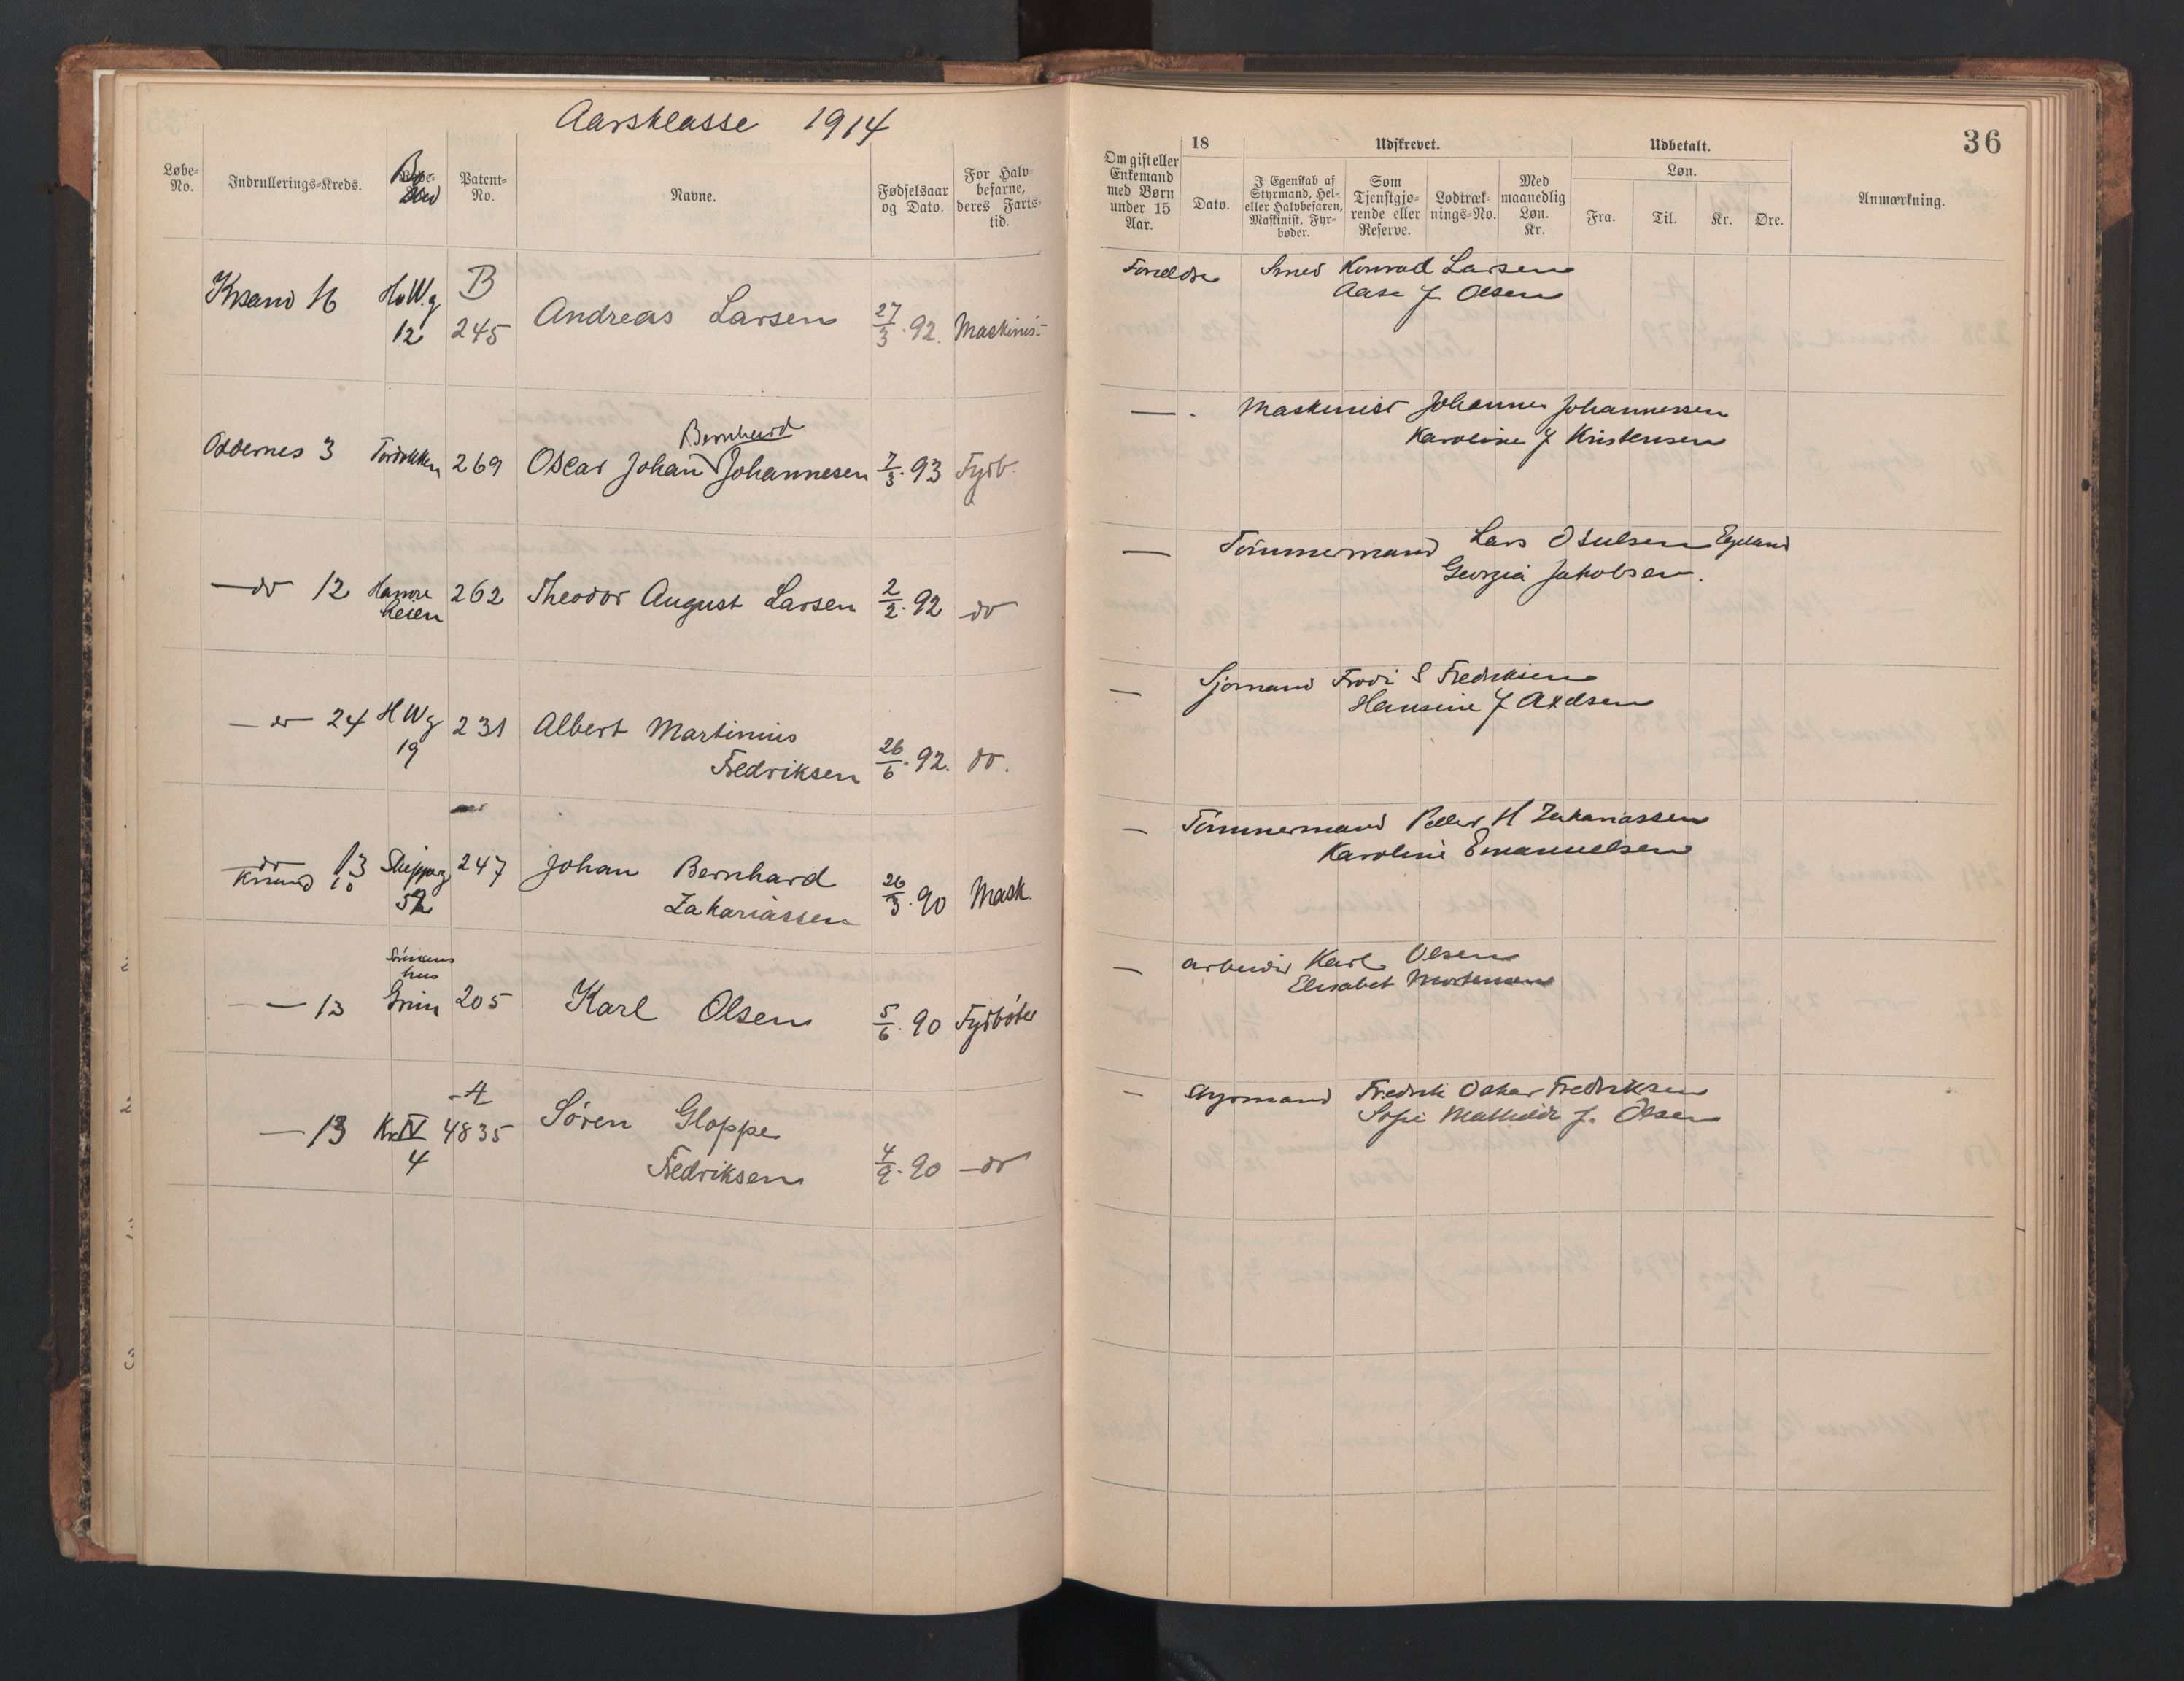 Aarsklasse 1914
36
Løbe-No.
Indrullerings-Kreds.
Patent-No.
Navne.
Fødselsaar og Dato.
For Halvbefarne, deres Fartstid.
Om gift eller Enkemand med Børn under 15 Aar.
18
Dato.
Udskrevet.
I Egenskab af Styrmand, Hel- eller Halvbefaren, Maskinist, Fyrbøder.
Som Tjenstgjørende eller Reserve.
Lodtræknings-No.
Med maanedlig Løn. Kr.
Udbetalt.
Løn.
Fra.
Til.
Kr.
Øre.
Anmærkning.
Krsand 16 12 B 245 Andreas Larsen 27/3.92. Maskinist
Forældre Smed Konrad Larsen
Aase J Olsen
Oddernes 3 269 Oscar Johan Bernhard Johannesen 7/3.93 Fyrb.
— . Maskinist Johannes Johannessen
Karoline J Kristensen
— do 12 Hamreheien 262 Theodor August Larsen 2/2.92 do
— Tømmermand Lars Osulsen Egeland
Georgia Jakobsen.
— do 24 H W g 19 231 Albert Martinius
Fredriksen 26/6.92. do.
— Sjømand S Fredriksen
Hansine J Axelsen
do 13 Krsand 10 247 Johan Bernhard
Zakariassen 26/3.90 Mask.
— Tømmermand Peder H Zakariassen
Karoline Emanuelsen
— 13 hus Grim 205 Karl Olsen 5/6.90 Fyrbøter
— arbeider Karl Olsen
Elisabet Mortensen
— 13 Kr IV 4 A 4835 Søren Gloppe
Fredriksen 4/9.90 — do
— Styrmand Fredrik Oskar Fredriksen
Sofie Mathilde J. Olsen